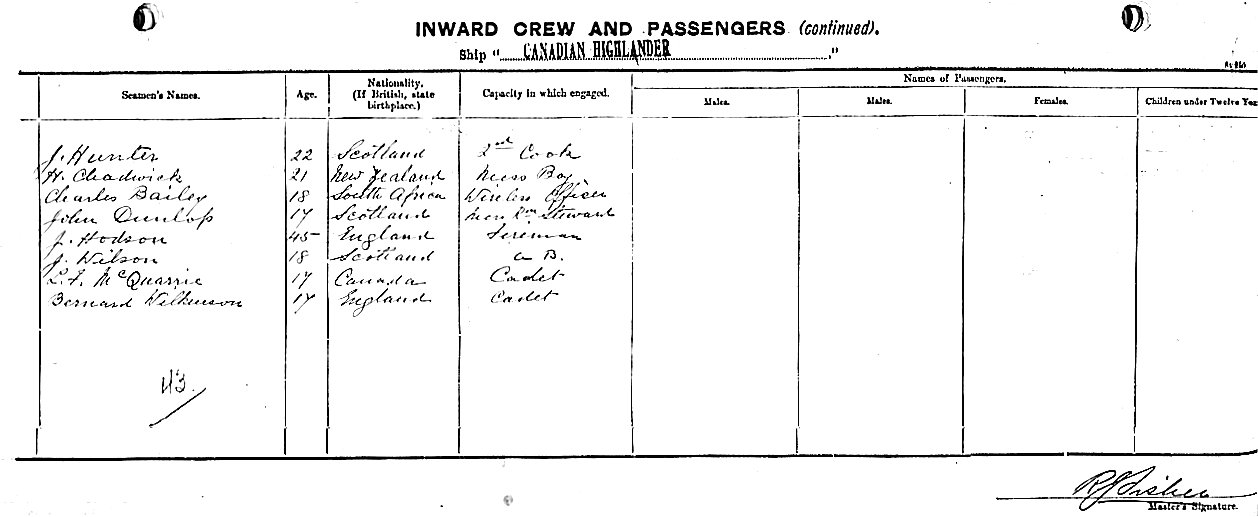 INWARD CREW AND PASSENGERS (continued).
Ship "CANADIAN HIGHLANDER"
Seamen's Names. Age. Nationality. (If British, state birthplace.) Capacity in which engaged. Names of Passengers.
Males. Males. Females. Children under Twelve Yea
J. Hunter 22 Scotland 2nd Cook
H. Chadwick 21 New Zealand Mess Boy
Charles Bailey 18 South Africa Wireless Officer
John Dunlop 17 Scotland Mess Rm Steward
J. Hodson 45 England Fireman
J. Wilson 18 Scotland A B.
L. F. McQuarrie 17 Canada Cadet
Bernard Wilkinson 17 England Cadet
43
Master's Signature.